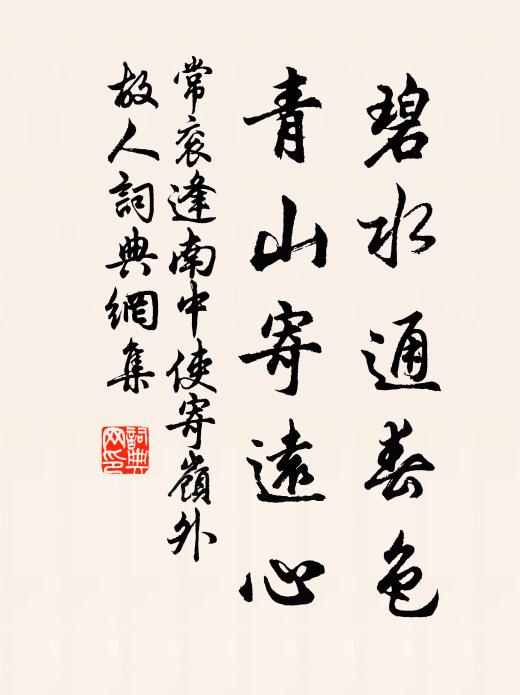 碧水通春色
青山寄遠心
常衮逢南中使寄嶺外
故人詞典網集
詞典
网印